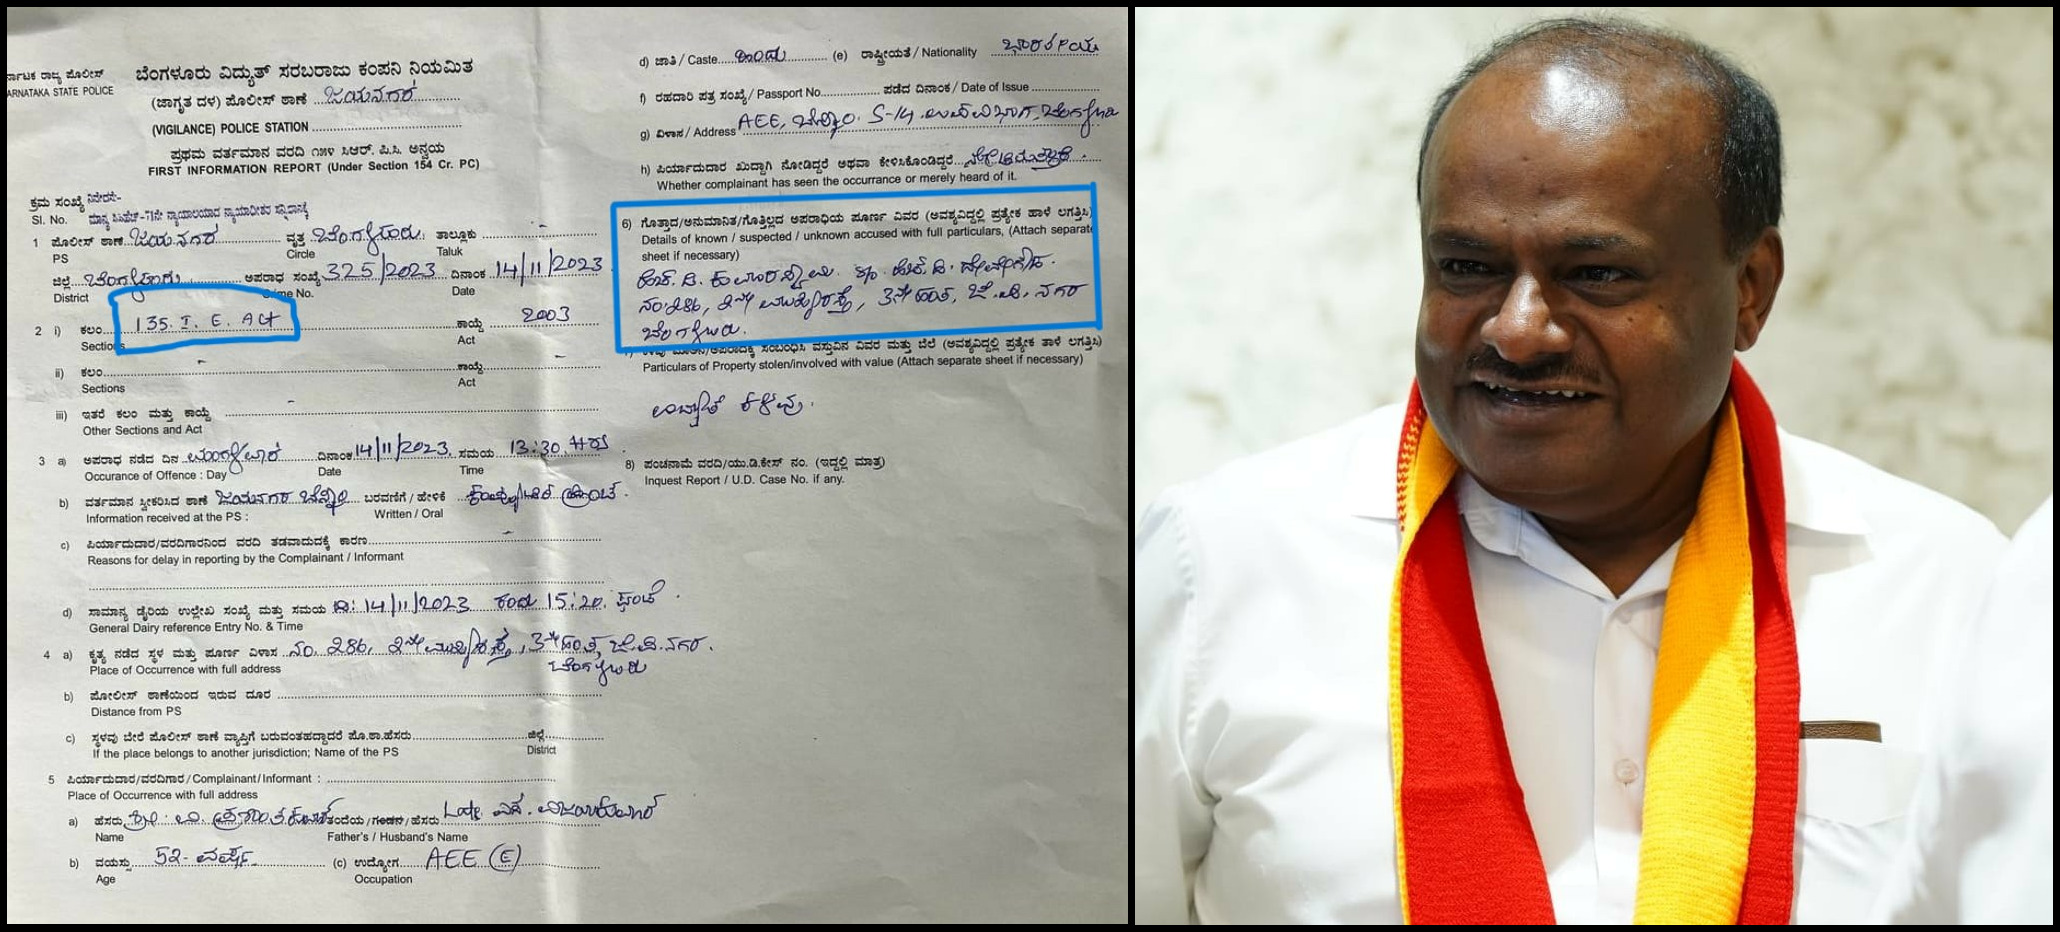 ರ್ನಾಟಕ ರಾಜ್ಯ ಪೊಲೀಸ್
ARNATAKA STATE POLICE
ಬೆಂಗಳೂರು ವಿದ್ಯುತ್ ಸರಬರಾಜು ಕಂಪನಿ ನಿಯಮಿತ
(ಜಾಗೃತ ದಳ) ಪೊಲೀಸ್ ಠಾಣೆ ಜಯನಗರ
(VIGILANCE) POLICE STATION
ಪ್ರಥಮ ವರ್ತಮಾನ ವರದಿ ೧೫೪ ಸಿಆರ್. ಪಿ.ಸಿ. ಅನ್ವಯ
FIRST INFORMATION REPORT (Under Section 154 Cr. PC)
ಕ್ರಮ ಸಂಖ್ಯೆ
Sl. No.
1 ಪೊಲೀಸ್ ಠಾಣೆ ಜಯನಗರ ವೃತ್ತ ಬೆಂಗಳೂರು ತಾಲ್ಲೂಕು
PS Circle Taluk
ಜಿಲ್ಲೆ ಬೆಂಗಳೂರು ಅಪರಾಧ ಸಂಖ್ಯೆ 325/2023 ದಿನಾಂಕ 14/11/2023
District me No. Date
2 i) ಕಲಂ 135. I. E. Act ಕಾಯ್ದೆ 2003
Sections Act
ii) ಕಲಂ ಕಾಯ್ದೆ
Sections Act
iii) ಇತರೆ ಕಲಂ ಮತ್ತು ಕಾಯ್ದೆ
Other Sections and Act
3 a) ಅಪರಾಧ ನಡೆದ ದಿನ ಮಂಗಳವಾರ ದಿನಾಂಕ 14/11/2023 ಸಮಯ 13:30 HRS
Occurance of Offence : Day Date Time
b) ವರ್ತಮಾನ ಸ್ವೀಕರಿಸಿದ ಠಾಣೆ ಜಯನಗರ ಬರವಣಿಗೆ / ಹೇಳಿಕೆ
Information received at the PS : Written / Oral
c) ಪಿರ್ಯಾದುದಾರ/ವರದಿಗಾರನಿಂದ ವರದಿ ತಡವಾದುದಕ್ಕೆ ಕಾರಣ
Reasons for delay in reporting by the Complainant / Informant
d) ಸಾಮಾನ್ಯ ಡೈರಿಯ ಉಲ್ಲೇಖ ಸಂಖ್ಯೆ ಮತ್ತು ಸಮಯ ದಿ: 14/11/2023 ರಂದು 15:20 ಘಂಟೆ
General Dairy reference Entry No. & Time
4 a) ಕೃತ್ಯ ನಡೆದ ಸ್ಥಳ ಮತ್ತು ಪೂರ್ಣ ವಿಳಾಸ ನಂ. 286, 2ನೇ ಮುಖ್ಯರಸ್ತೆ, 3ನೇ ಹಂತ, ಜೆ.ಪಿ.ನಗರ.
Place of Occurrence with full address ಬೆಂಗಳೂರು
b) ಪೋಲೀಸ್ ಠಾಣೆಯಿಂದ ಇರುವ ದೂರ
Distance from PS
c) ಸ್ಥಳವು ಬೇರೆ ಪೊಲೀಸ್ ಠಾಣೆ ವ್ಯಾಪ್ತಿಗೆ ಬರುವಂತಹದ್ದಾದರೆ ಪೊ.ಠಾ.ಹೆಸರು ಜಿಲ್ಲೆ
If the place belongs to another jurisdiction; Name of the PS District
5 ಪಿರ್ಯಾದುದಾರ/ವರದಿಗಾರ/Complainant/Informant :
Place of Occurrence with full address
a) ಹೆಸರು ತಂದೆಯ/ಗಂಡನ/ಹೆಸರು Late
Name Father's / Husband's Name
b) ವಯಸ್ಸು 52 ವರ್ಷ (c) ಉದ್ಯೋಗ AEE (E)
Age Occupation
d) ಜಾತಿ / Caste ಹಿಂದು (e) ರಾಷ್ಟ್ರೀಯತೆ / Nationality ಭಾರತೀಯ
f) ರಹದಾರಿ ಪತ್ರ ಸಂಖ್ಯೆ / Passport No. ಪಡೆದ ದಿನಾಂಕ / Date of Issue
g) ವಿಳಾಸ / Address AEE, ಬೆವಿಕಂ. S-14 ಉಪವಿಭಾಗ, ಬೆಂಗಳೂರು
h) ಪಿರ್ಯಾದುದಾರ ಖುದ್ದಾಗಿ ನೋಡಿದ್ದರೆ ಅಥವಾ ಕೇಳಿಸಿಕೊಂಡಿದ್ದರೆ
Whether complainant has seen the occurrance or merely heard of it.
6) ಗೊತ್ತಾದ/ಅನುಮಾನಿತ/ಗೊತ್ತಿಲ್ಲದ ಅಪರಾಧಿಯ ಪೂರ್ಣ ವಿವರ (ಅವಶ್ಯವಿದ್ದಲ್ಲಿ ಪ್ರತ್ಯೇಕ ಹಾಳೆ ಲಗತ್ತಿಸಿ)
Details of known / suspected / unknown accused with full particulars, (Attach separate
sheet if necessary)
ಹೆಚ್.ಡಿ. ಕುಮಾರಸ್ವಾಮಿ ಹೆಚ್.ಡಿ. ದೇವೇಗೌಡ.
ನಂ:286, 2ನೇ ಮುಖ್ಯರಸ್ತೆ, 3ನೇ ಹಂತ, ಜೆ.ಪಿ. ನಗರ
ಬೆಂಗಳೂರು.
ಸಂಬಂಧಿಸಿ ವಸ್ತುವಿನ ವಿವರ ಮತ್ತು ಬೆಲೆ (ಅವಶ್ಯವಿದ್ದಲ್ಲಿ ಪ್ರತ್ಯೇಕ ತಾಳೆ ಲಗತ್ತಿಸಿ)
Particulars of Property stolen/involved with value (Attach separate sheet if necessary)
ವಿದ್ಯುತ್ ಕಳವು.
8) ಪಂಚನಾಮೆ ವರದಿ/ಯು.ಡಿ.ಕೇಸ್ ನಂ. (ಇದ್ದಲ್ಲಿ ಮಾತ್ರ)
Inquest Report / U.D. Case No. if any.